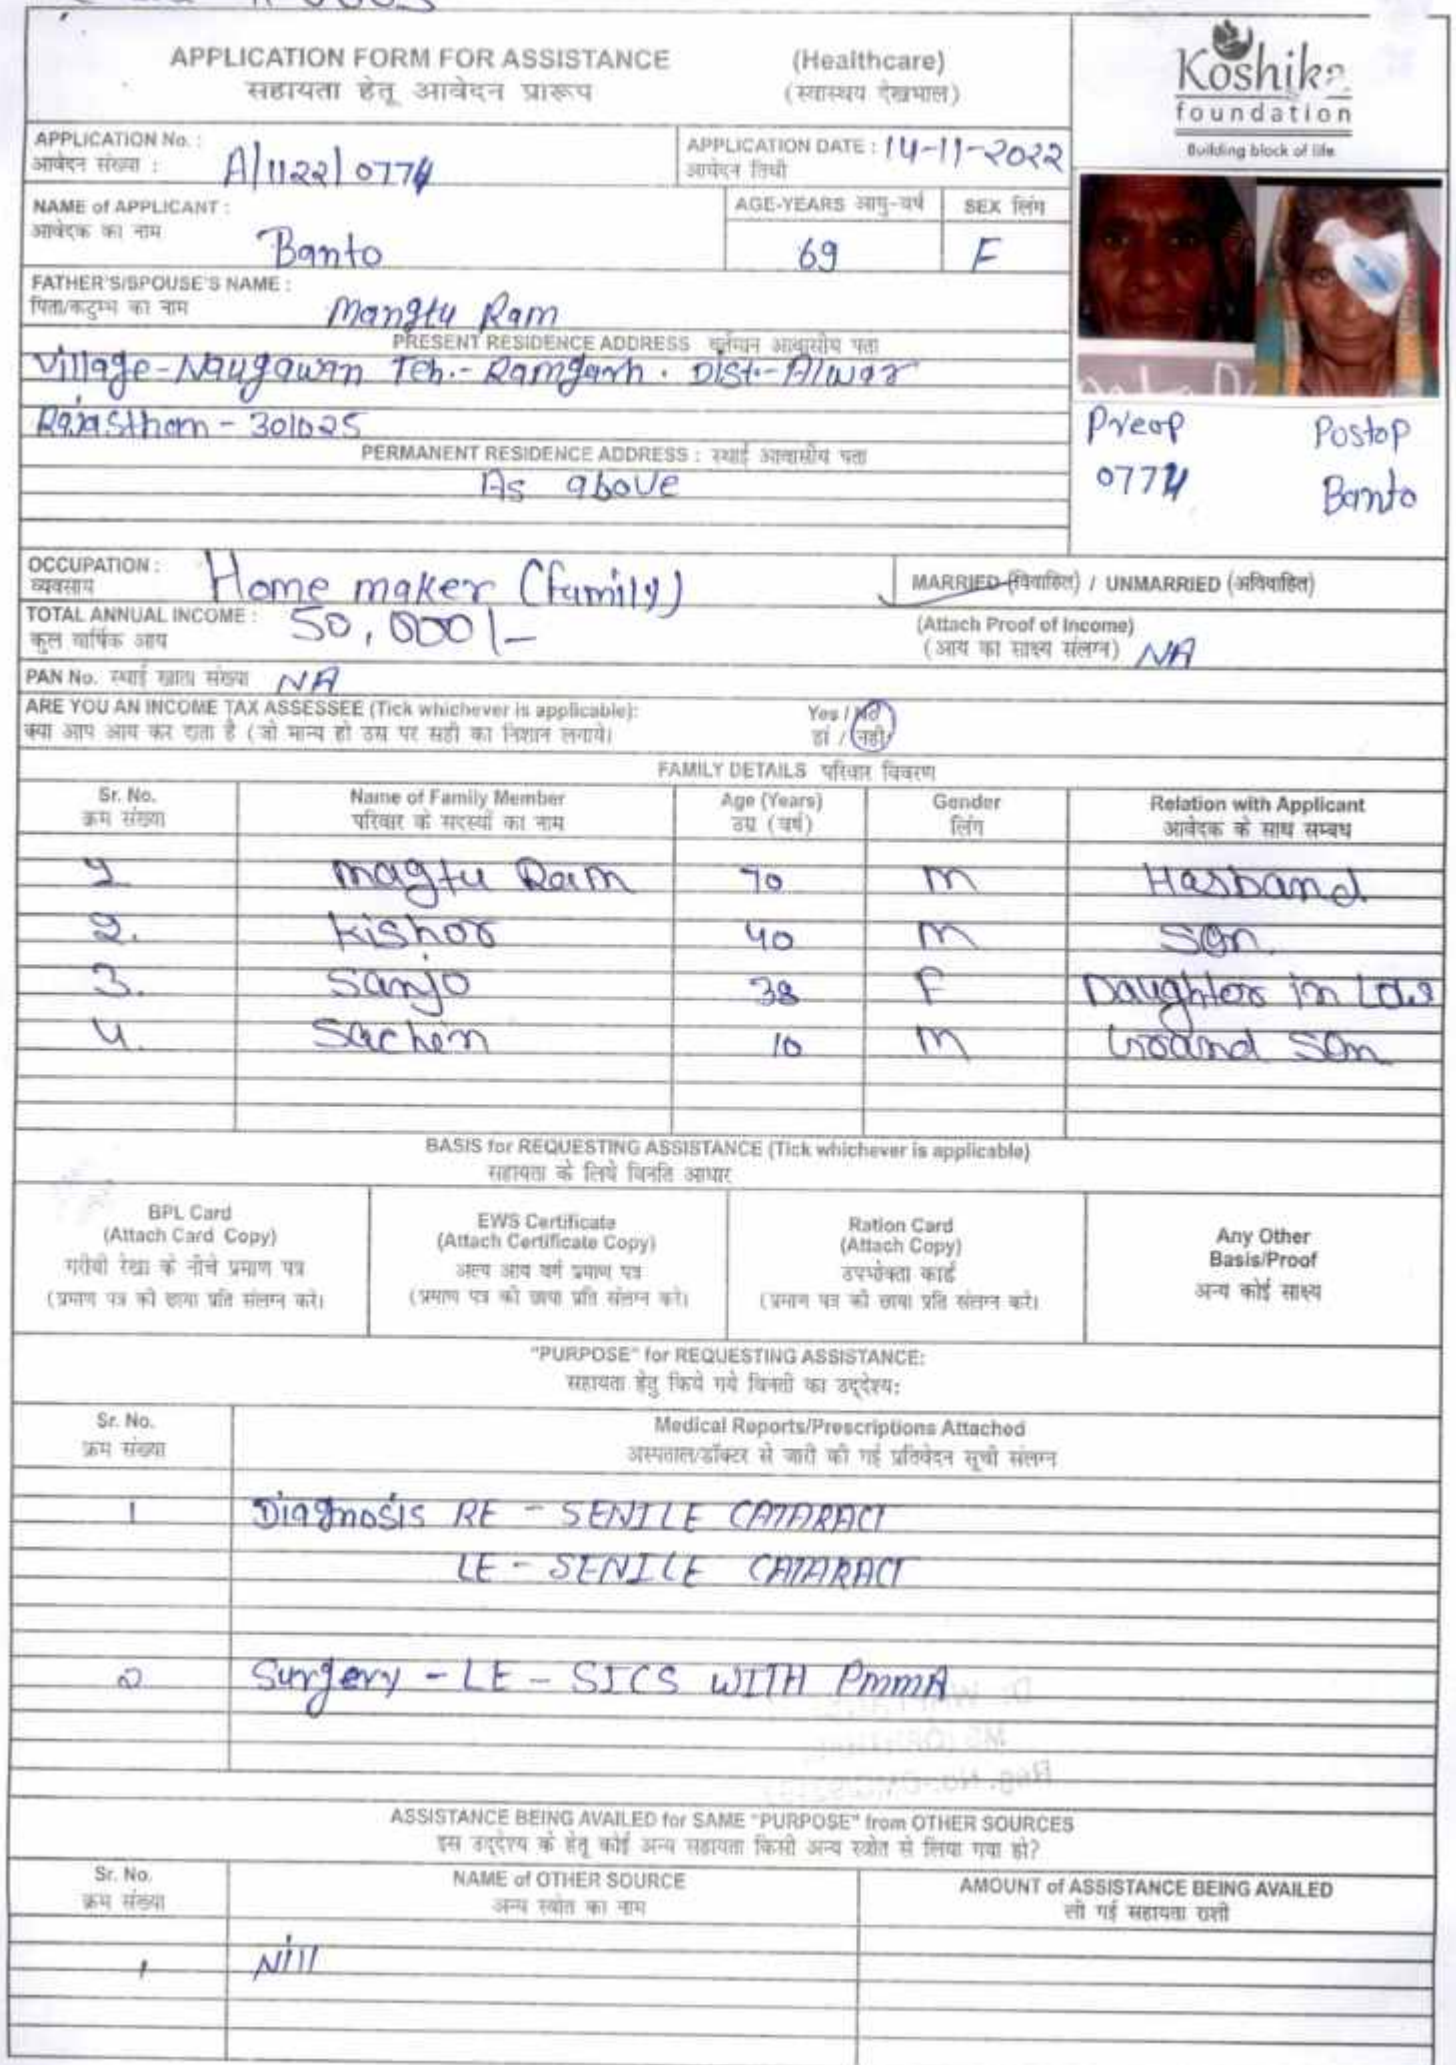 APPLICATION FORM FOR ASSISTANCE (Healthcare)
सहायता हेतू आवेदन प्रारूप (स्वास्थय देखभाल)
Koshika
foundation
Building block of life
APPLICATION No. : A/1122/0774
आवेदन संख्या :
APPLICATION DATE : 14-11-2022
आवेदन तिथी
NAME of APPLICANT : Banto
आवेदक का नाम
AGE-YEARS आयु-वर्ष 69
SEX लिंग F
FATHER'S/SPOUSE'S NAME : Mangtu Ram
पिता/कटुम्भ का नाम
PRESENT RESIDENCE ADDRESS वर्तमान आवासीय पता
Village-Naugawan Teh.- Ramgarh. Dist.-Alwar
Rajasthan - 301025
PERMANENT RESIDENCE ADDRESS : स्थाई आवासीय पता
As above
Preop Postop
0774 Banto
OCCUPATION : Home maker (family)
व्यवसाय
MARRIED (विवाहित) / UNMARRIED (अविवाहित)
TOTAL ANNUAL INCOME : 50,000/-
कुल वार्षिक आय
(Attach Proof of Income)
(आय का साक्ष्य संलग्न) NA
PAN No. स्थाई खाता संख्या NA
ARE YOU AN INCOME TAX ASSESSEE (Tick whichever is applicable): Yes / No
क्या आप आय कर दाता है (जो मान्य हो उस पर सही का निशान लगाये। हां / नहीं
FAMILY DETAILS परिवार विवरण
Sr. No. Name of Family Member Age (Years) Gender Relation with Applicant
क्रम संख्या परिवार के सदस्यों का नाम उम्र (वर्ष) लिंग आवेदक के साथ सम्बध
1 Magtu Ram 70 M Hasband
2. Kishor 40 M Son
3. Sanjo 38 F Daughter in Law
4. Sachen 10 M Grand Son
BASIS for REQUESTING ASSISTANCE (Tick whichever is applicable)
सहायता के लिये विनति आधार
BPL Card
(Attach Card Copy)
गरीबी रेखा के नीचे प्रमाण पत्र
(प्रमाण पत्र की छाया प्रति संलग्न करे।
EWS Certificate
(Attach Certificate Copy)
अल्प आय वर्ग प्रमाण पत्र
(प्रमाण पत्र की छाया प्रति संलग्न करे।
Ration Card
(Attach Copy)
उपभोक्ता कार्ड
(प्रमाण पत्र की छाया प्रति संलग्न करे।
Any Other
Basis/Proof
अन्य कोई साक्ष्य
"PURPOSE" for REQUESTING ASSISTANCE:
सहायता हेतु किये गये विनती का उद्देश्य:
Sr. No. Medical Reports/Prescriptions Attached
क्रम संख्या अस्पताल/डॉक्टर से जारी की गई प्रतिवेदन सूची संलग्न
1 Diagnosis RE - SENILE CATARACT
LE - SENILE CATARACT
2 Surgery - LE - SICS WITH PMMA
ASSISTANCE BEING AVAILED for SAME "PURPOSE" from OTHER SOURCES
इस उद्देश्य के हेतू कोई अन्य सहायता किसी अन्य स्त्रोत से लिया गया हो?
Sr. No. NAME of OTHER SOURCE AMOUNT of ASSISTANCE BEING AVAILED
क्रम संख्या अन्य स्त्रोत का नाम ली गई सहायता राशी
1 Nill